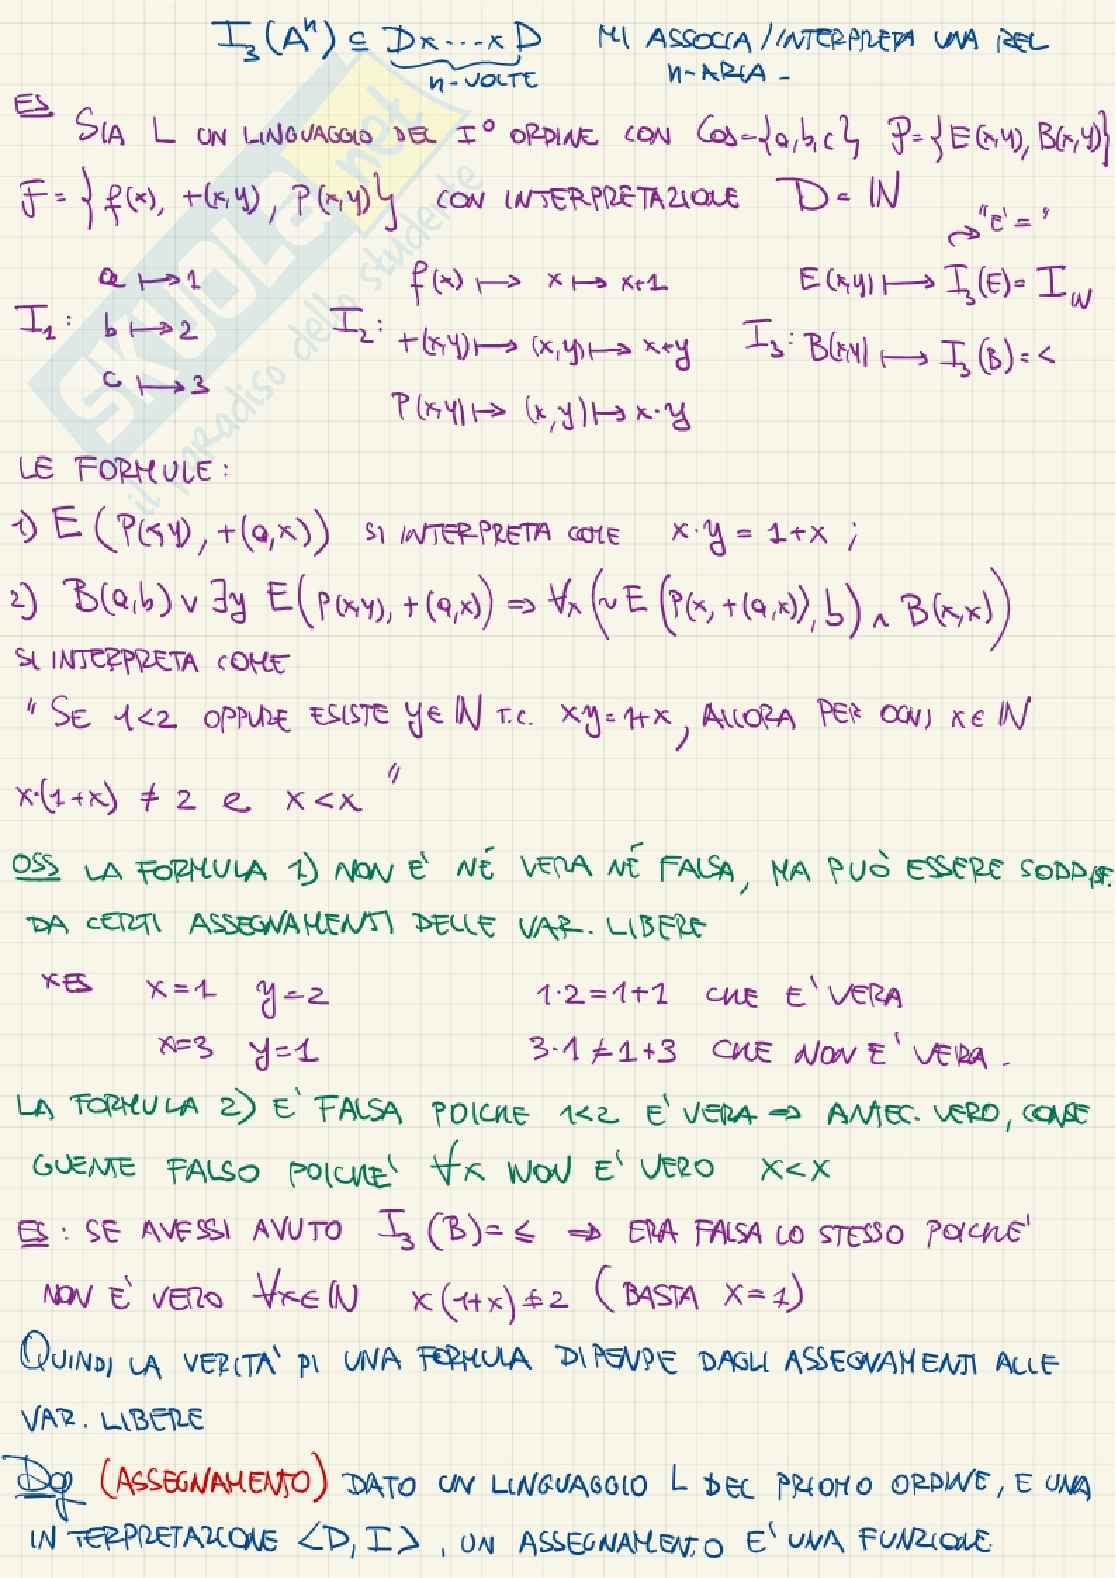 I₃(Aⁿ) ⊆ D×...×D MI ASSOCIA/INTERPRETA UNA REL
n-VOLTE n-ARIA -
ES SIA L UN LINGUAGGIO DEL I° ORDINE CON Cos={a,b,c}, P={E(x,y), B(x,y)}
F={f(x), +(x,y), P(x,y)} CON INTERPRETAZIONE D=ℕ
↪ "E' = "
I₁: a ↦ 1
b ↦ 2
c ↦ 3
I₂: f(x) ↦ x ↦ x+1
+(x,y) ↦ (x,y) ↦ x+y
P(x,y) ↦ (x,y) ↦ x·y
E(x,y) ↦ I₃(E)= I_ℕ
I₃: B(x,y) ↦ I₃(B)= <
LE FORMULE:
1) E(P(x,y), +(a,x)) SI INTERPRETA COME x·y = 1+x ;
2) B(a,b) ∨ ∃y E(P(x,y), +(a,x)) ⇒ ∀x (~E(P(x, +(a,x)), b) ∧ B(x,x))
SI INTERPRETA COME
"SE 1<2 OPPURE ESISTE y∈ℕ T.C. xy=1+x, ALLORA PER OGNI x∈ℕ
x·(1+x) ≠ 2 e x<x "
OSS LA FORMULA 1) NON E' NÉ VERA NÉ FALSA, MA PUÒ ESSERE SODDISF.
DA CERTI ASSEGNAMENTI DELLE VAR. LIBERE
xES x=1 y=2 1·2=1+1 CHE E' VERA
x=3 y=1 3·1≠1+3 CHE NON E' VERA.
LA FORMULA 2) E' FALSA POICHE 1<2 E' VERA ⇒ ANTEC. VERO, CONSE
GUENTE FALSO POICHE' ∀x NON E' VERO x<x
ES: SE AVESSI AVUTO I₃(B)=≤ ⇒ ERA FALSA LO STESSO POICHE'
NON E' VERO ∀x∈ℕ x(1+x)≠2 (BASTA X=1)
QUINDI LA VERITA' DI UNA FORMULA DIPENDE DAGLI ASSEGNAMENTI ALLE
VAR. LIBERE
Def (ASSEGNAMENTO) DATO UN LINGUAGGIO L DEL PRIMO ORDINE, E UNA
INTERPRETAZIONE <D,I>, UN ASSEGNAMENTO E' UNA FUNZIONE
SKUOLA.net
il paradiso dello studente